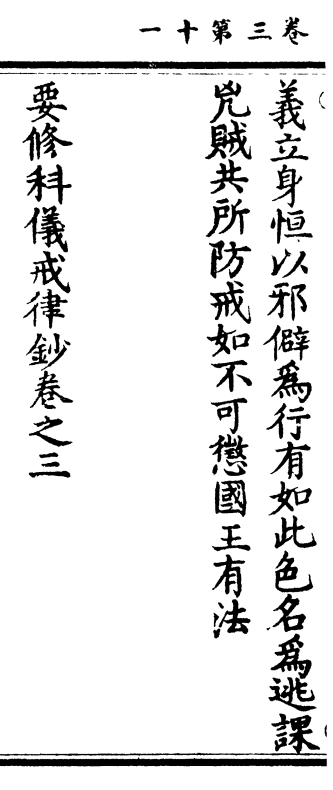 卷三第十一
義立身恒以邪僻為行有如此色名為逃課
兇賊共所防戒如不可懲國王有法
要修科儀戒律鈔卷之三